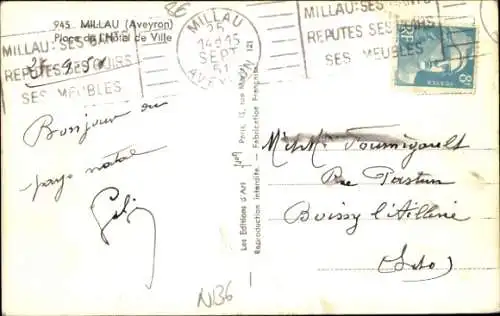 945. MILLAU (Aveyron)
Place de l'Hôtel de Ville
MILLAU: SES GANTS
REPUTES SES CUIRS
SES MEUBLES
MILLAU
25
14H15
SEPT
51
AVEYRON
MILLAU: SES GANTS
REPUTES SES CUIRS
SES MEUBLES
26
25.9.51
Bonjour du
pays natal
Les Editions d'Art
Paris, 15, rue Martel
121
Reproduction interdite. - Fabrication Française
M. et Mme Fournigault
Rue Pasteur
Boissy l'Aillerie
(S et O)
N136